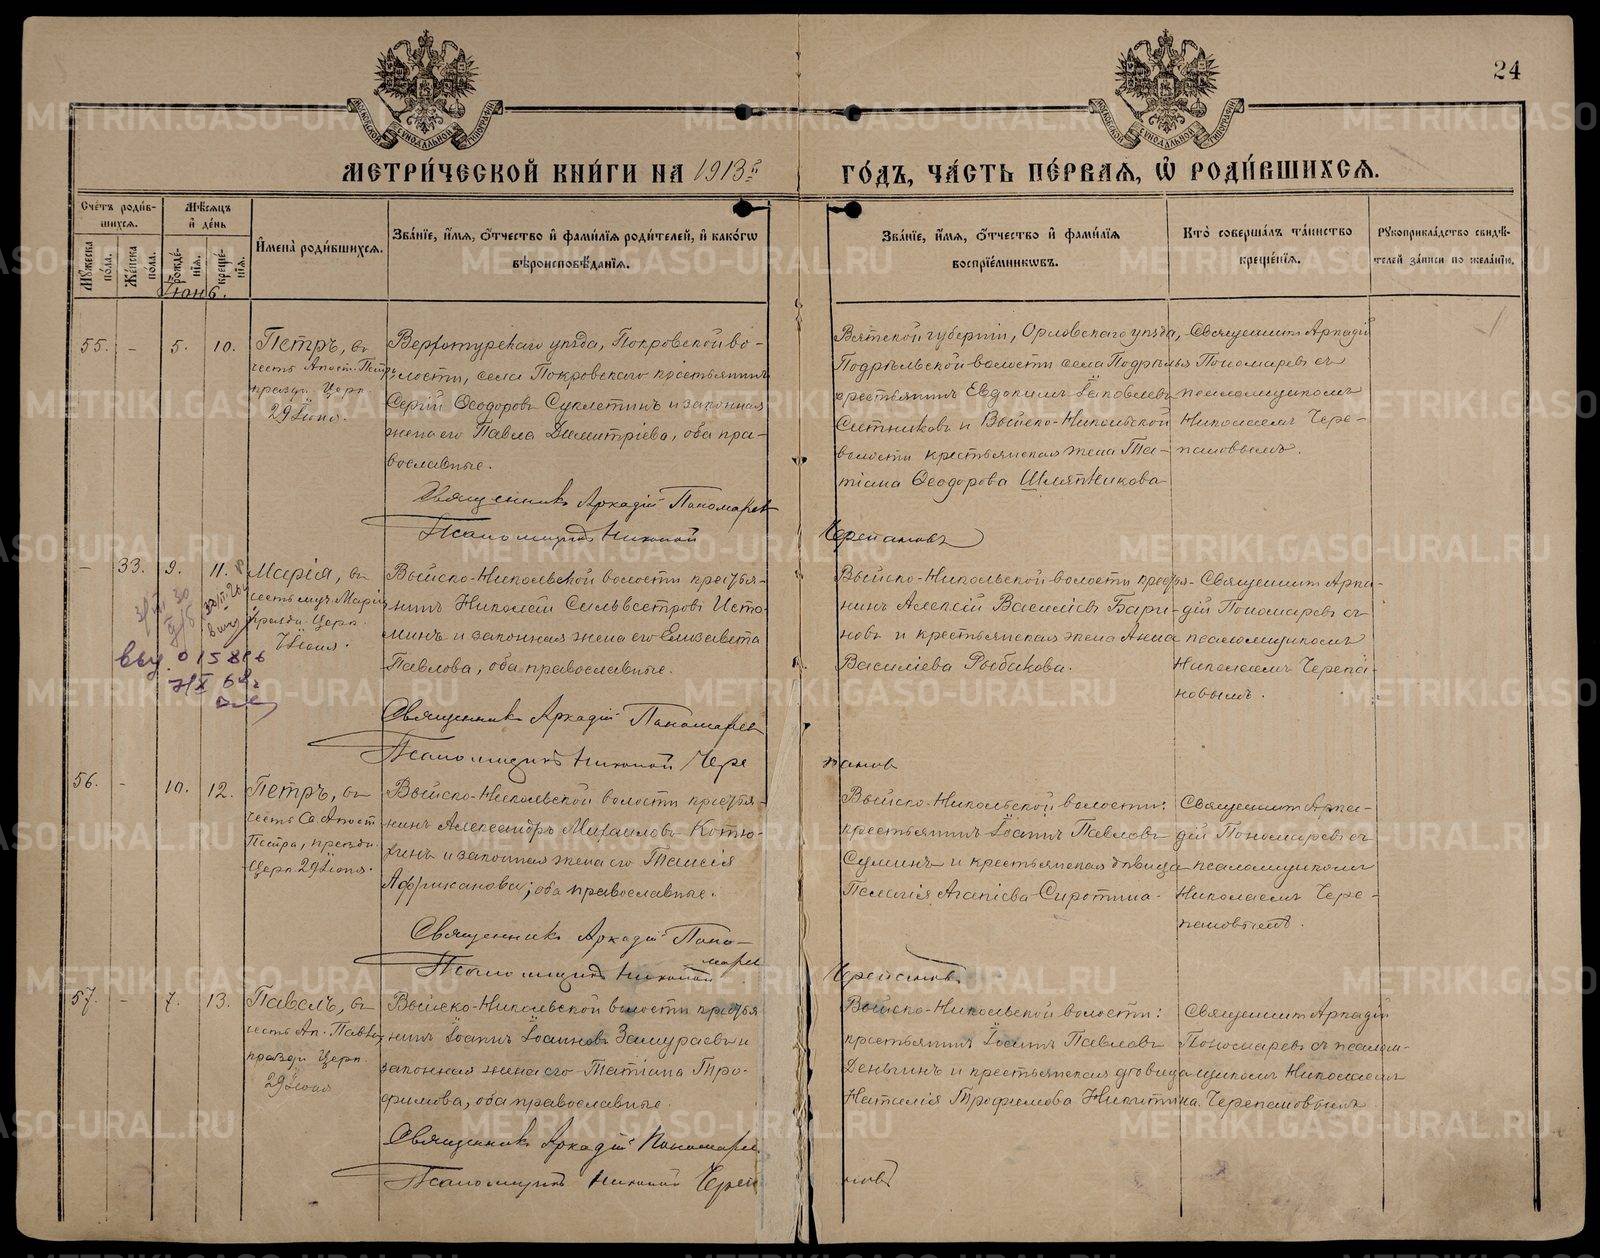 24
МЕТРИ́ЧЕСКОЙ КНИ́ГИ НА 1913 г. ГО́ДЪ, ЧА́СТЬ ПЕ́РВАЯ, Ѡ҆ РОДИ́ВШИХСЯ.
Сче́тъ роди́вшихся.
Му́жеска по́ла.
Же́нска пола.
Мѣ́сяцъ и҆ де́нь
рожде́нїя.
креще́нїя.
И҆мена̀ роди́вшихся.
Зва́нїе, и҆́мя, ѻ҆́тчество и҆ фами́лїя роди́телей, и҆ како́гѡ
вѣроисповѣ́данїя.
Зва́нїе, и҆́мя, ѻ҆́тчество и҆ фами́лїя
воспрїе́мникѡвъ.
Кто̀ соверша́лъ та́инство
креще́нїя.
Рукоприкла́дство свидѣ́-
телей за́писи по жела́нїю.
Іюнь.
55. - 5. 10.
Петръ, въ
честь Апост. Петра
празд. Церк.
29 Іюня.
Верхотурскаго уѣзда, Покровской во-
лости, села Покровскаго крестьянинъ
Сергій Ѳеодоровъ Суклетинъ и законная
жена его Павла Димитріева, оба пра-
вославные.
Священникъ Аркадій Пономаревъ
Псаломщикъ Николай Черепановъ
Вятской губерніи, Орловскаго уѣзда,
Подрѣльской волости села Подрѣлья
крестьянинъ Евдокимъ Іаковлевъ
Ситниковъ и Выйско-Никольской
волости крестьянская жена Та-
тіана Ѳеодорова Шляпникова
Священникъ Аркадій
Пономаревъ съ
псаломщикомъ
Николаемъ Чере-
пановымъ.
- 33. 9. 11.
Марія, въ
честь муч. Маріи
праздн. Церк.
7 Іюня.
Выйско-Никольской волости крестья-
нинъ Николай Сильвестровъ Исто-
минъ и законная жена его Елизавета
Павлова, оба православные.
Священникъ Аркадій Пономаревъ
Псаломщикъ Николай Черепановъ
Выйско-Никольской волости крестья-
нинъ Алексій Василіевъ Бари-
новъ и крестьянская жена Анна
Василіева Рыбакова.
Священникъ Арка-
дій Пономаревъ съ
псаломщикомъ
Николаемъ Черепа-
новымъ.
56. - 10. 12.
Петръ, въ
честь Св. Апост.
Петра, праздн.
Церк 29 Іюня.
Выйско-Никольской волости крестья-
нинъ Александръ Михаиловъ Котю-
гинъ и законная жена его Таисія
Африканова; оба православные.
Священникъ Аркадій Пономарев
Псаломщикъ Николай Черепановъ
Выйско-Никольской волости:
крестьянинъ Іоаннъ Павловъ
Суминъ и крестьянская дѣвица
Пелагія Агапіева Сиротина.
Священникъ Арка-
дій Пономаревъ съ
псаломщикомъ
Николаемъ Чере-
пановымъ.
57. - 7. 13.
Павелъ, въ
честь Ап. Павла,
праздн Церк.
29 Іюня
Выйско-Никольской волости крестья
нинъ Іоаннъ Іоанновъ Замураевъ и
законная жена его Татіана Тро-
фимова, оба православные.
Священникъ Аркадій Пономарев
Псаломщикъ Николай Черепановъ
Выйско-Никольской волости:
крестьянинъ Іоаннъ Павловъ
Деньгинъ и крестьянская дѣвица
Наталія Трофимова Никитина.
Священникъ Аркадій
Пономаревъ съ псалом-
щикомъ Николаемъ
Черепановымъ
METRIKI.GASO-URAL.RU